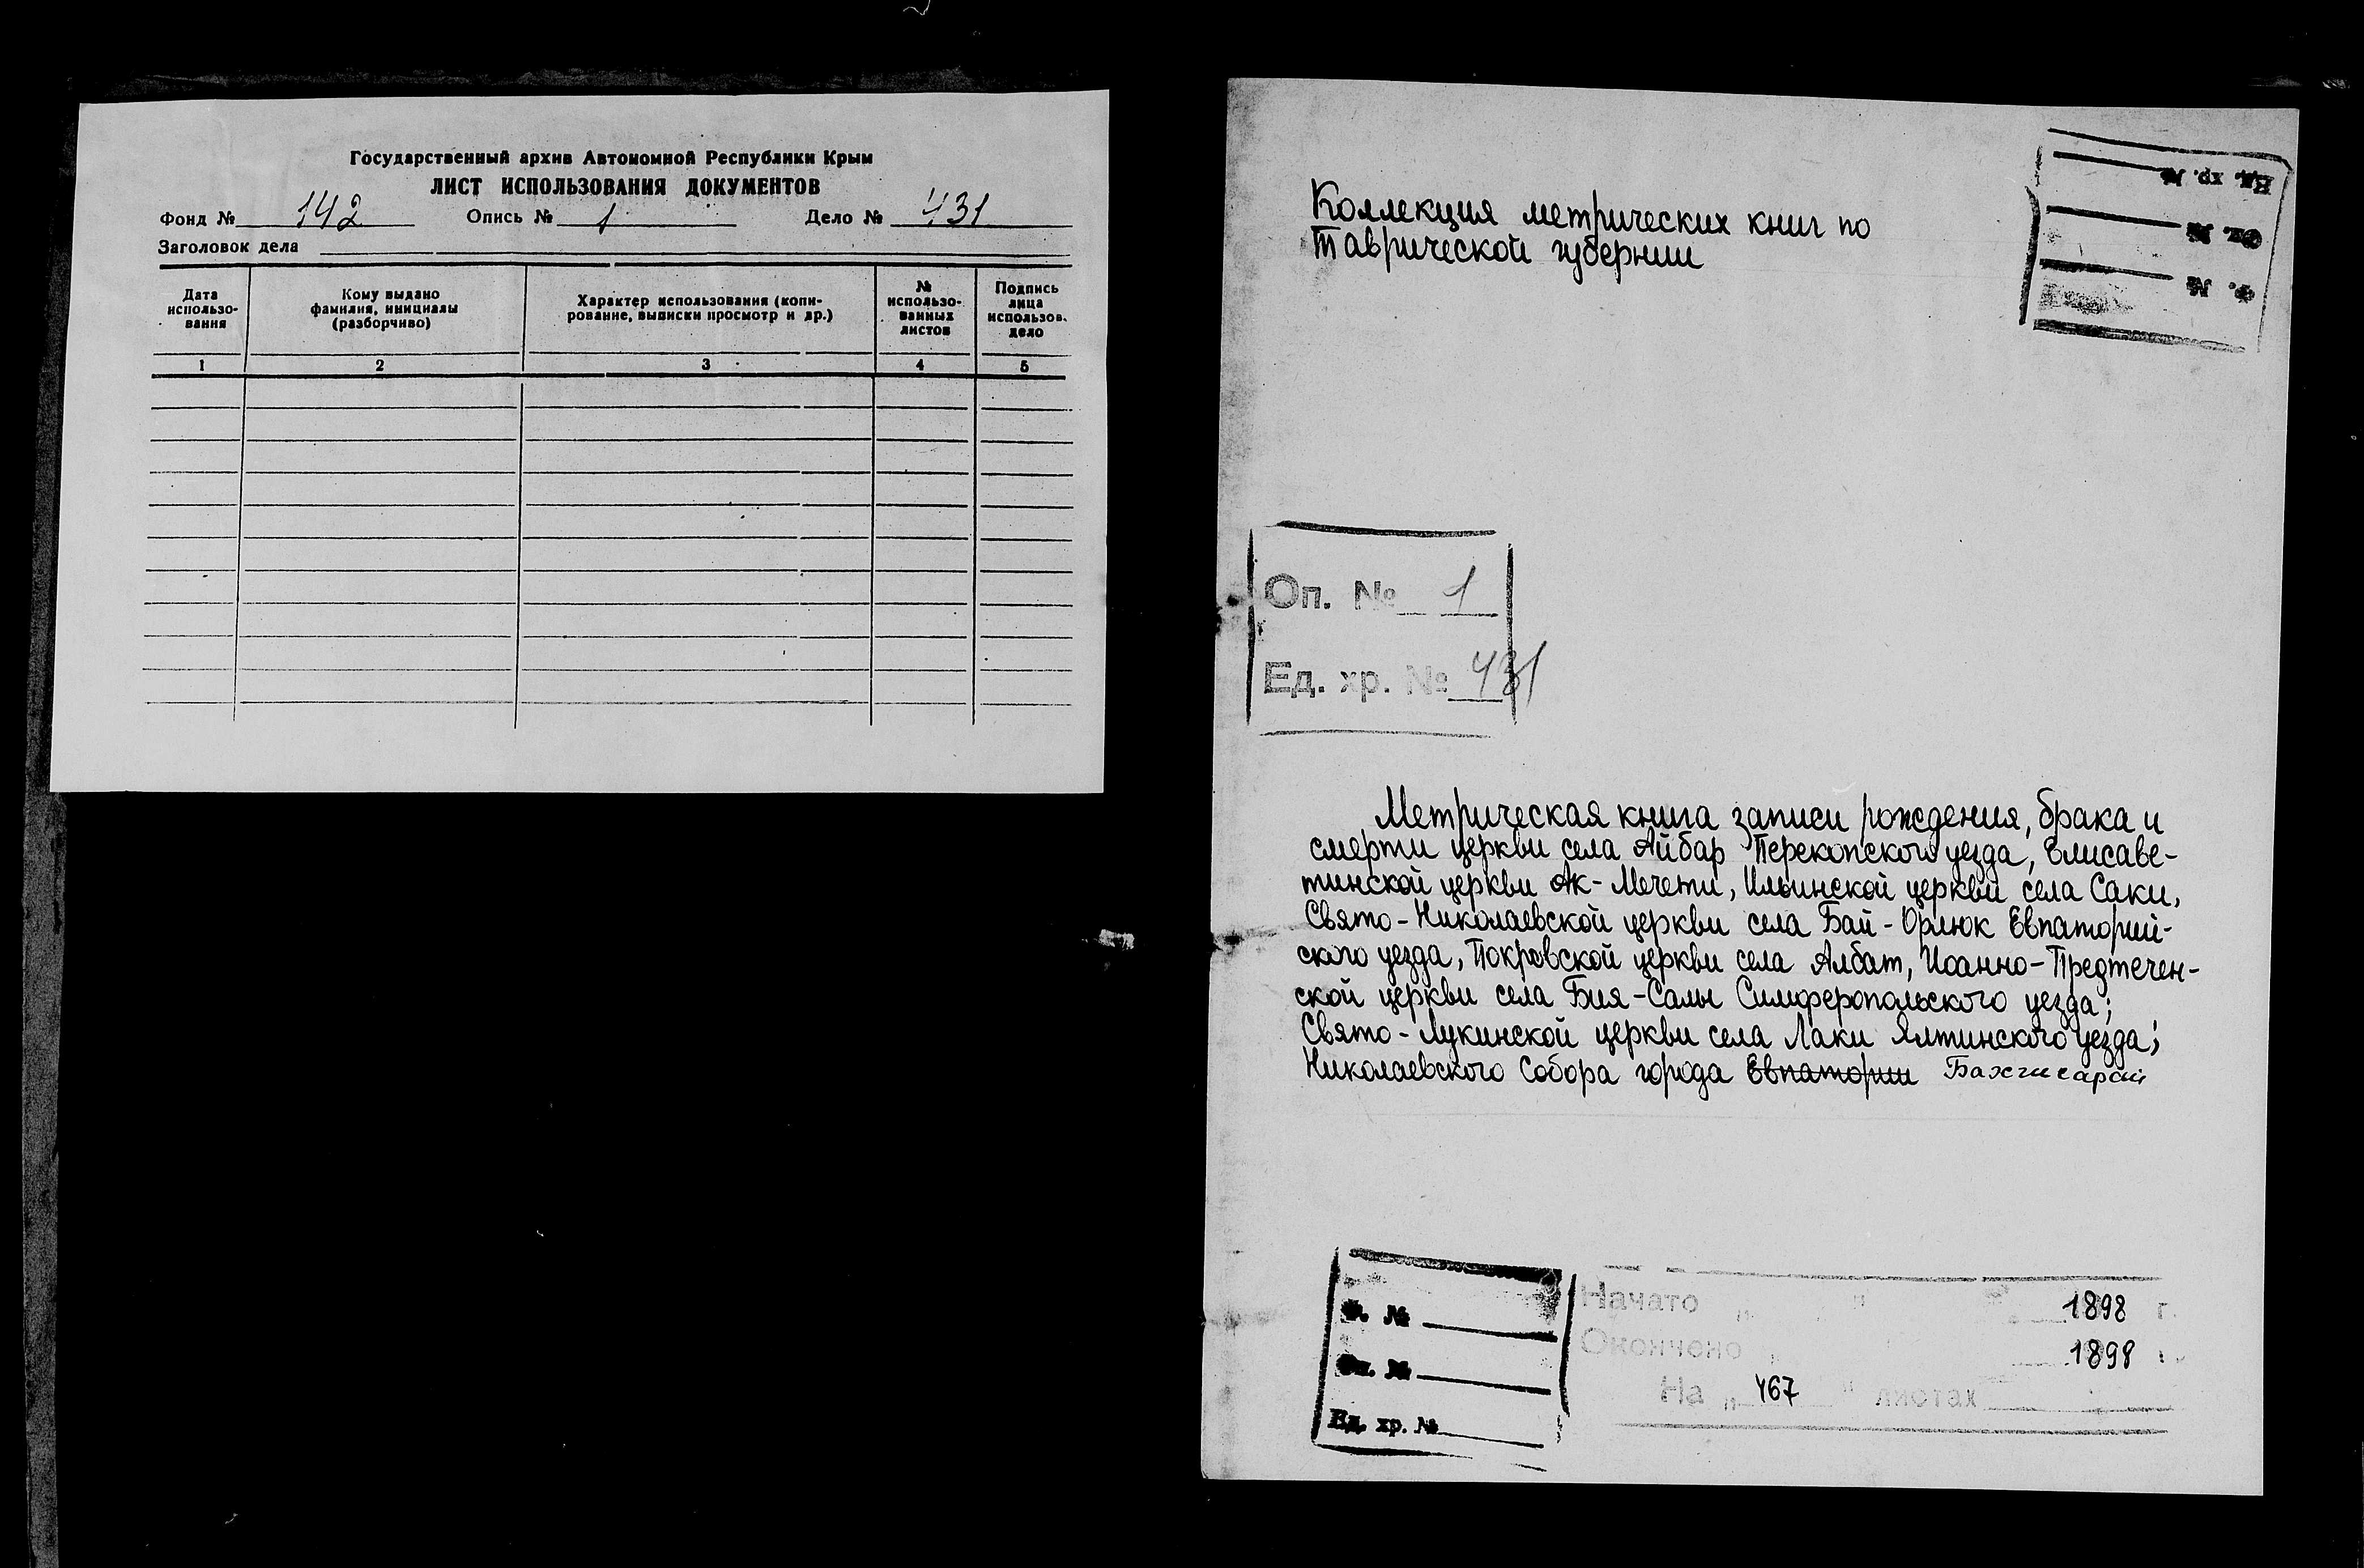 Государственный архив Автономной Республики Крым
ЛИСТ ИСПОЛЬЗОВАНИЯ ДОКУМЕНТОВ
Фонд № 142 Опись № 1 Дело № 431
Заголовок дела
Дата использо-вания
Кому выдано фамилия, инициалы (разборчиво)
Характер использования (копи-рование, выписки просмотр и др.)
№ использо-ванных листов
Подпись лица использов. дело
1 2 3 4 5
Коллекция метрических книг по
Таврической губернии
Ед. хр. №
Оп. №
Ф. №
Оп. № 1
Ед. хр. № 431
Метрическая книга записи рождения, брака и
смерти церкви села Айбар Перекопского уезда, Елисаве-
тинской церкви Ак-Мечети, Ильинской церкви села Саки,
Свято-Николаевской церкви села Бай-Орлюк Евпаторий-
ского уезда, Покровской церкви села Албат, Иоанно-Предтечен-
ской церкви села Бия-Салы Симферопольского уезда;
Свято-Лукинской церкви села Лаки Ялтинского уезда;
Николаевского Собора города Евпатории Бахчисарай
Ф. №
Оп. №
Ед. хр. №
Начато „ " 1898 г.
Окончено „ 1898 г.
На „ 467 " листах